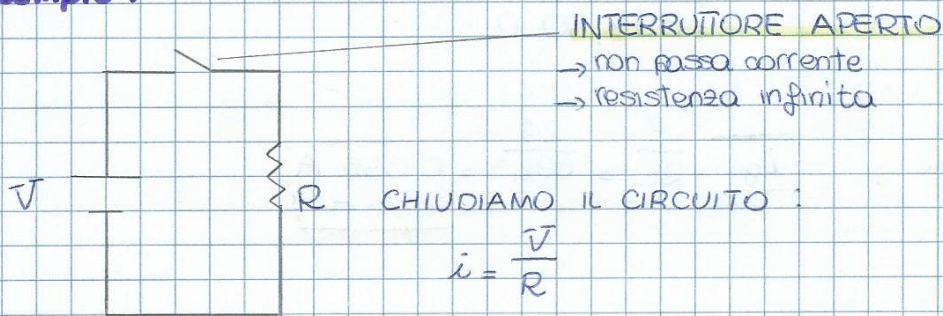 INTERRUTTORE APERTO
→ non passa corrente
→ resistenza infinita
V
R CHIUDIAMO IL CIRCUITO :
i = V/R